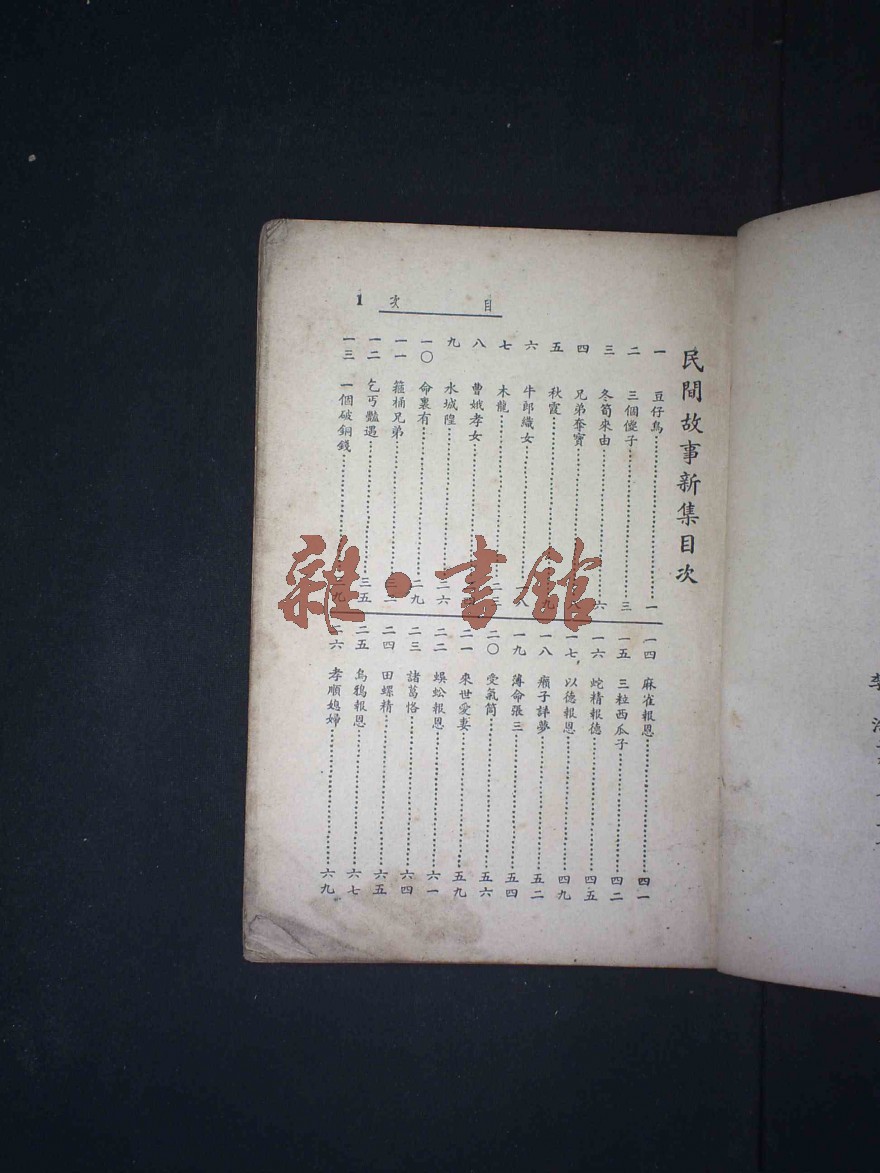 民間故事新集目次
一 豆仔鳥……一
二 三個儍子……三
三 冬筍來由……六
四 兄弟奪寶……八
五 秋霞……
六 牛郎織女……
七 木龍……
八 曹娥孝女……
九 水城隍……二六
一〇 命裏有……二九
一一 箍桶兄弟……三二
一二 乞丐豔遇……三五
一三 一個破銅錢……三九
一四 麻雀報恩……四一
一五 三粒西瓜子……四二
一六 蛇精報德……四五
一七 以德報恩……四九
一八 癩子詳夢……五二
一九 薄命張三……五四
二〇 受氣筒……五六
二一 來世愛妻……五九
二二 蜈蚣報恩……六一
二三 諸葛恪……六四
二四 田螺精……六五
二五 烏鴉報恩……六七
二六 孝順媳婦……六九
目次
1
雜·書館